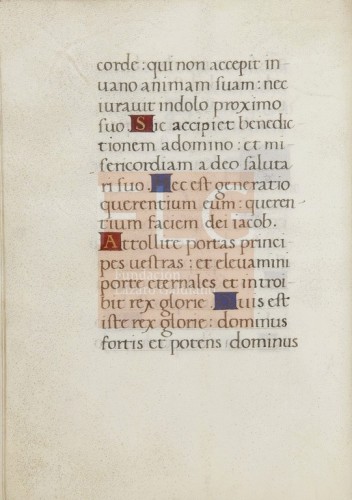 corde : qui non accepit in
uano animam suam : nec
iurauit indolo proximo
suo . Sic accipiet benedic
tionem adomino : et mi
sericordiam a deo saluta
ri suo . Hec est generatio
querentium eum : queren
tium faciem dei iacob .
Attollite portas princi
pes uestras : et eleuamini
porte eternales et introi
bit rex glorie . Quis est
iste rex glorie : dominus
fortis et potens dominus
FLG
Fundación
Lázaro Galdiano